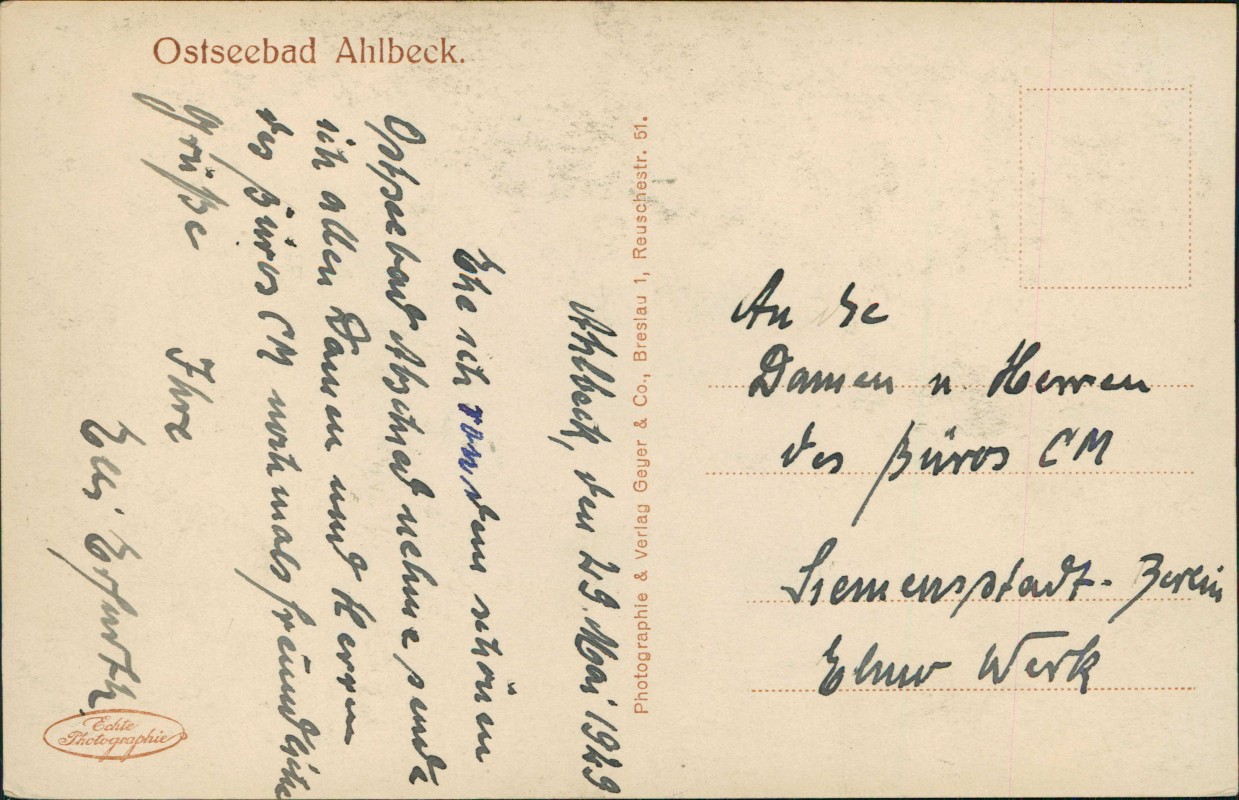 Ostseebad Ahlbeck.
Ahlbeck, den 29. Mai 1929
Ehe ich von dem schönen
Ostseebad Abschied nehme, sende
ich allen Damen und Herren
des Büros CM nochmals freundliche
Grüße
Ihre
Elli Erfurth.
Echte
Photographie
Photographie & Verlag Geyer & Co., Breslau 1, Reuschestr. 51.
An die
Damen u. Herren
des Büros CM
Siemensstadt-Berlin
Elmo Werk